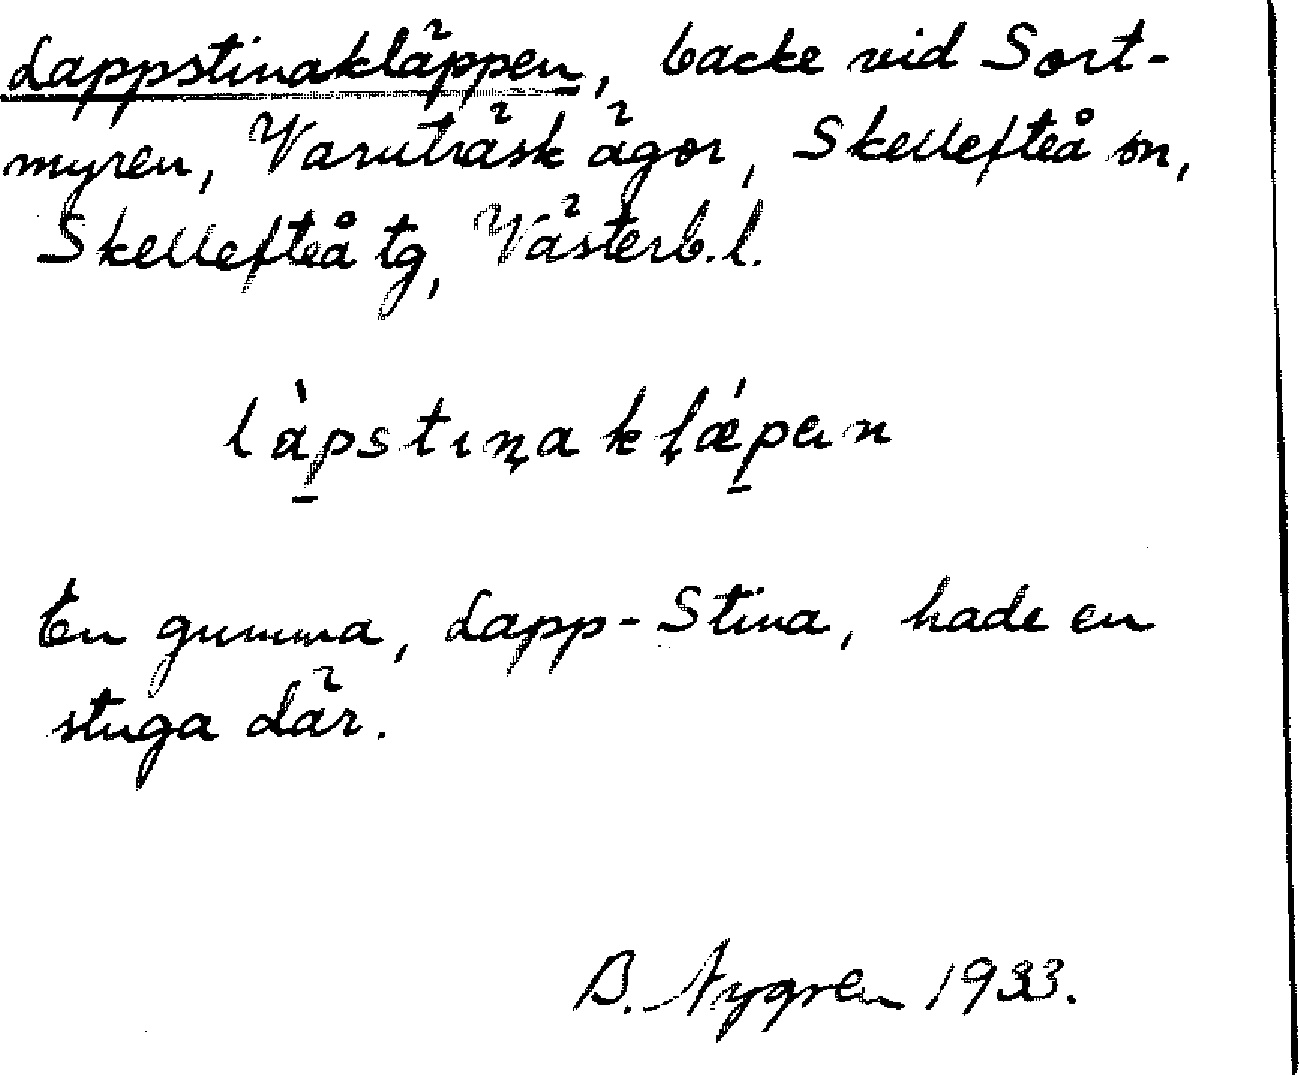 Lappstinakläppen, backe vid Sort-
myren, Varuträsk ägor, Skellefteå sn,
Skellefteå tg, Västerb. l.
làpstiṇakḷǽpen
En gumma, Lapp-Stina, hade en
stuga där.
B. Nygren 1933.